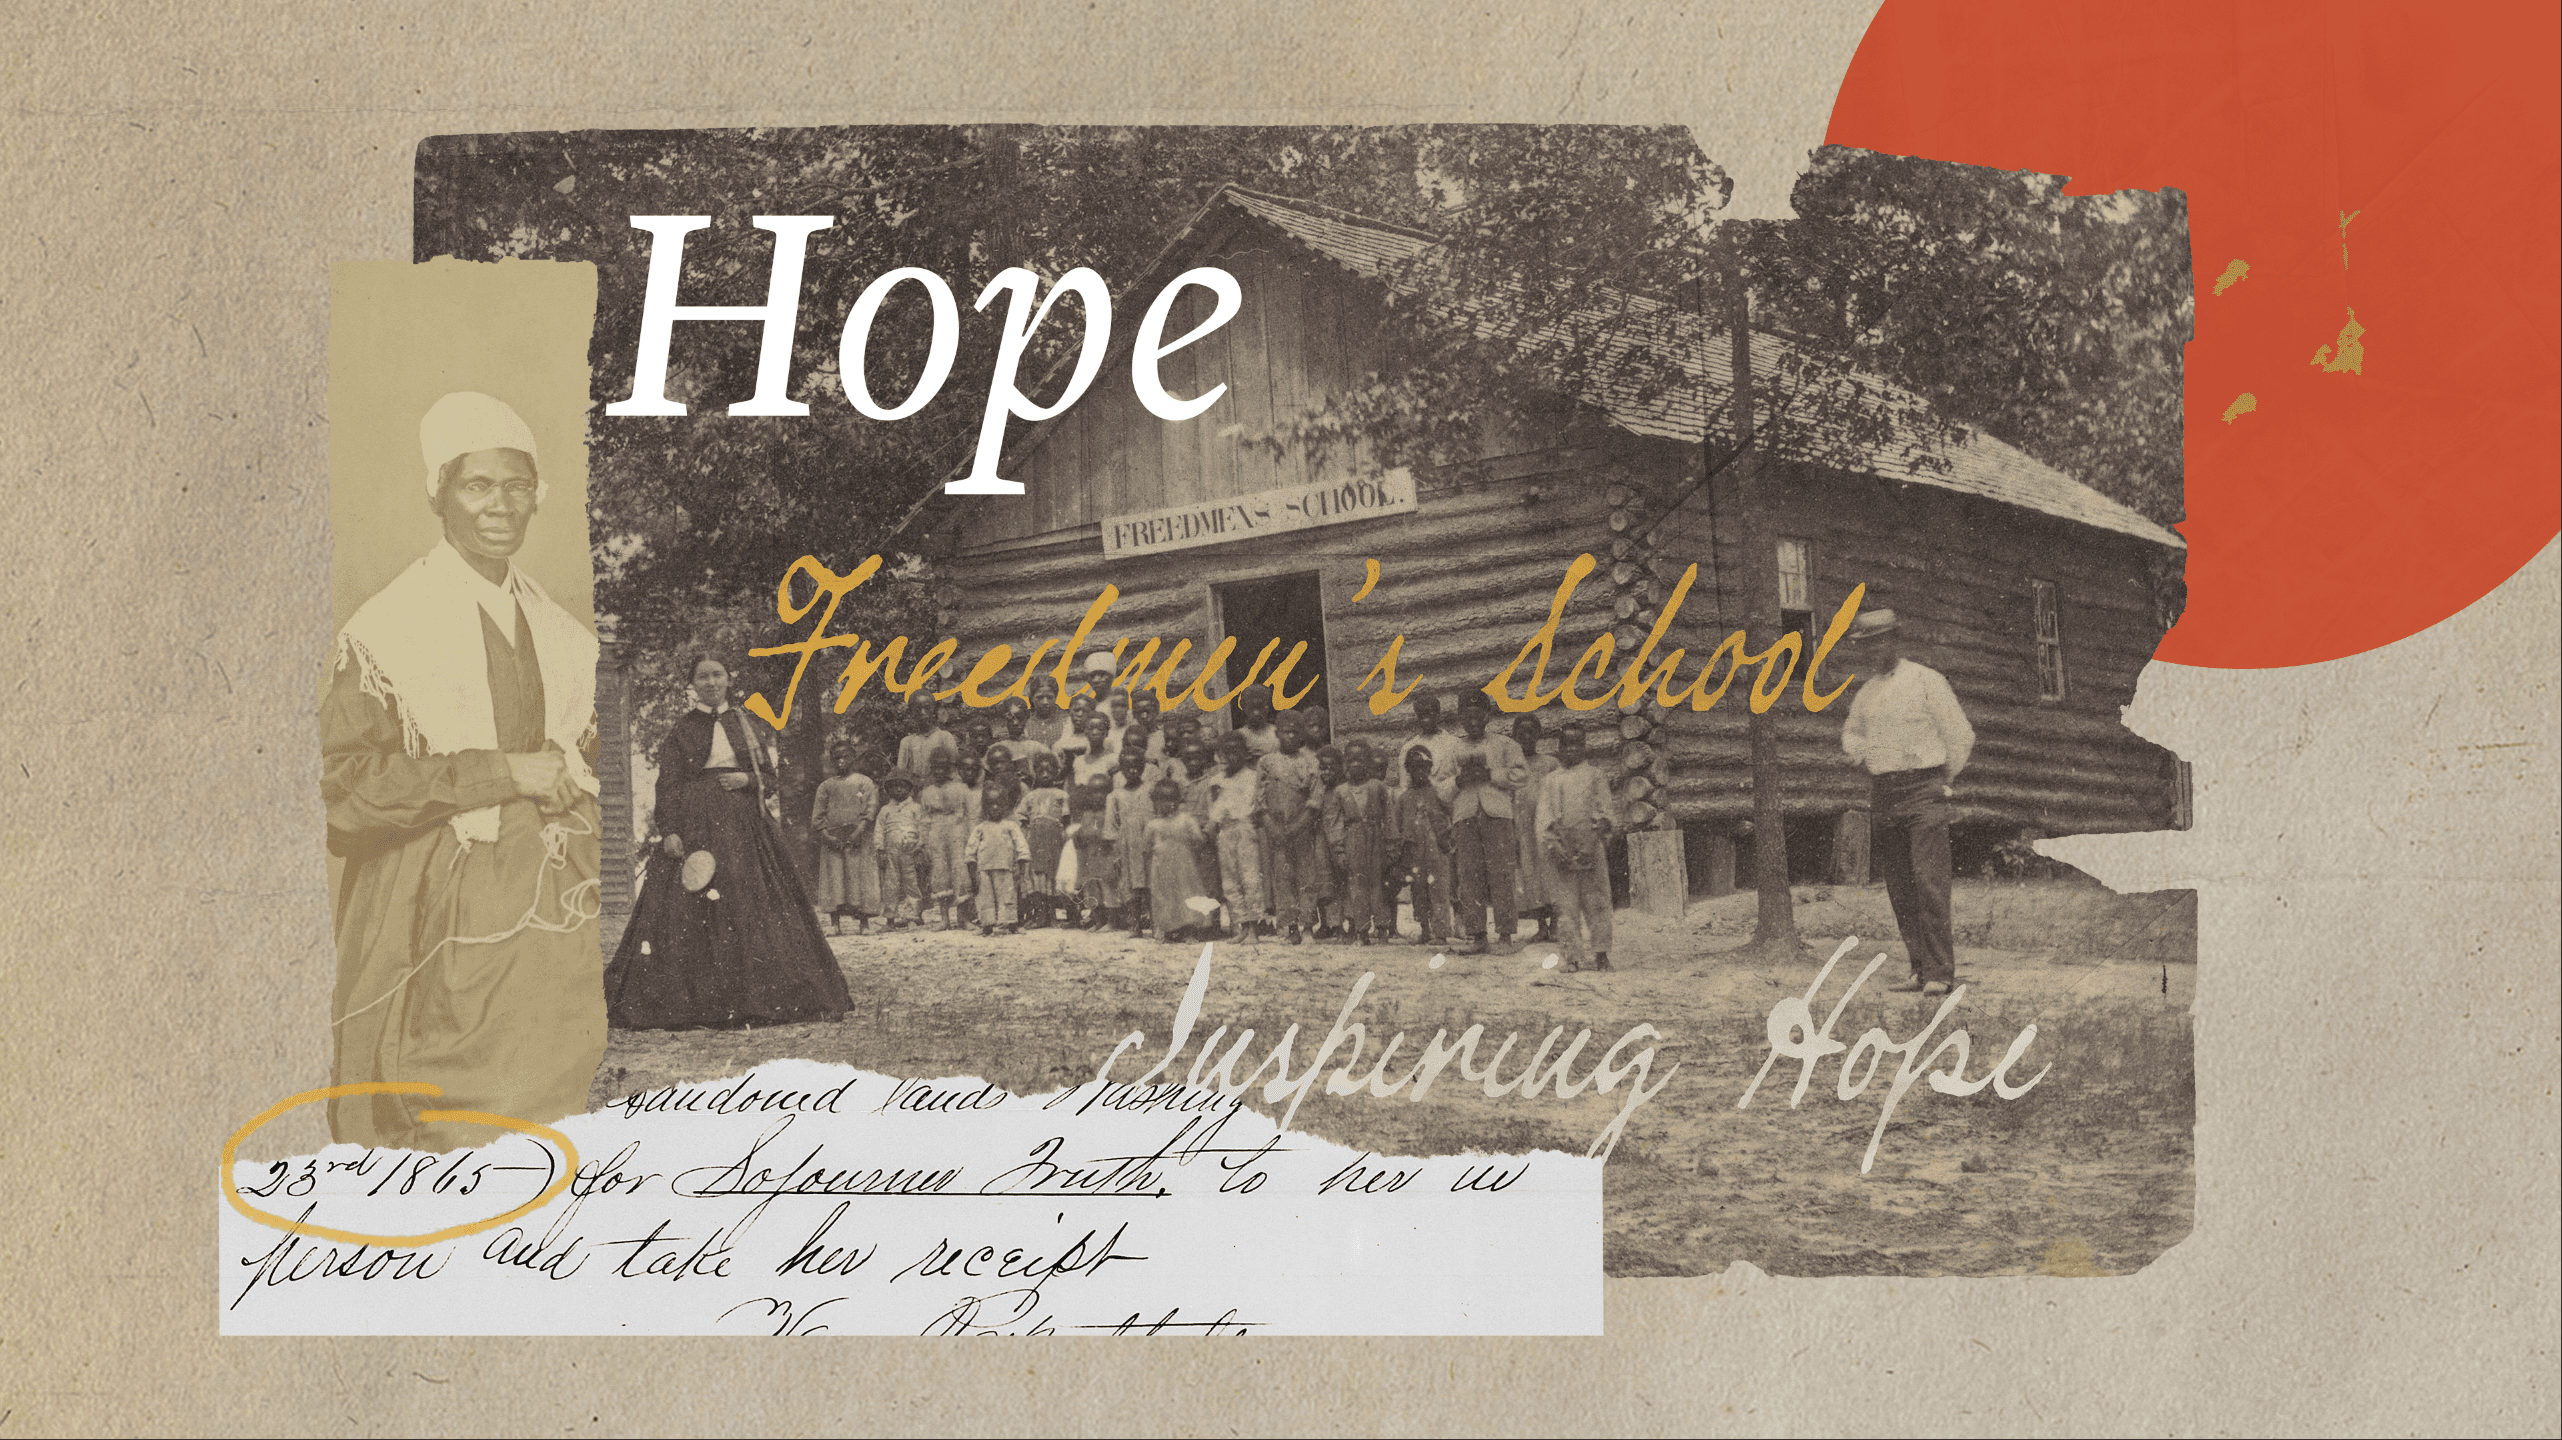 Hope
FREEDMEN'S SCHOOL.
Freedmen's School
Inspiring Hope
andoned lands Washing
23rd 1865) for Sojourner Truth. to her in
person and take her receipt